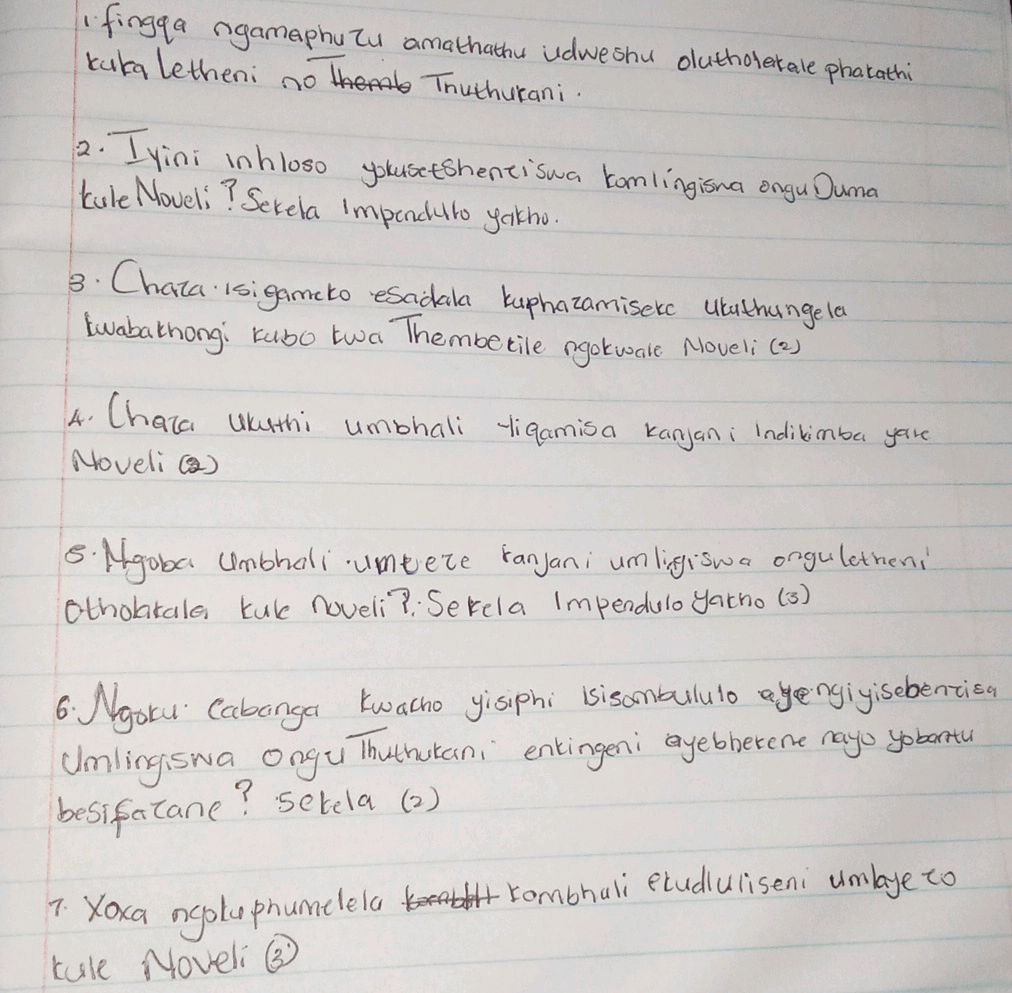 1. fingqa ngamaphuzu amathathu udweshu olutholakale phakathi
kuka Letheni no Thuthukani.
2. Iyini inhloso yokusetshenziswa komlingiswa onguDuma
kule Noveli? Sekela Impendulo yakho.
3. Chaza isigameko esadala kuphazamiseke ukuthungela
kwabakhongi kubo kwa Thembekile ngokwale Noveli (2)
4. Chaza ukuthi umbhali uliqamisa kanjani Indikimba yale
Noveli (2)
5. Ngoba Umbhali umveze kanjani umligiswa onguletheni
otholakala kule noveli? Sekela Impendulo yakho (3)
6. Ngoku Cabanga kwacho yisiphi isisombululo engiyisebenzisa
Umlingiswa onguThuthukani enkingeni ayebhekene nayo yobantu
besifazane? Sekela (2)
7. Xoxa ngokuphumelela kombhali ekudluliseni umlayezo
kule Noveli (3)